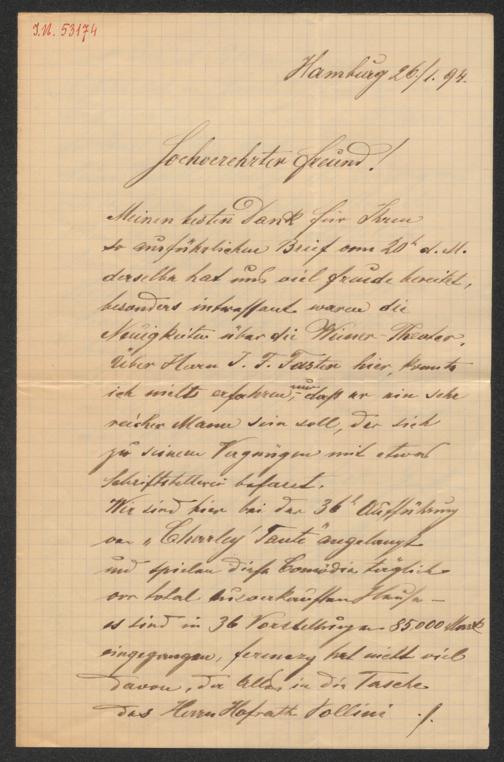 J.N. 53174
Hamburg 26/1. 94.
Hochverehrter Freund!
Meinen besten Dank für Ihren
so ausführlichen Brief vom 20t d. M.
derselbe hat uns viel Freude bereitet,
besonders intressant waren die
Neuigkeiten über die Wiener Theater,
Über Herrn J. F. hier, konnte
ich nichts erfahren, nur daß er ein sehr
reicher Mann sein soll, der sich
zu seinem Vergnügen mit etwas
Schriftstellerei befasst.
Wir sind hier bei der 36t Aufführung
von „Charley's Tante" angelangt
und spielen diese Comödie täglich
vor total ausverkauften Hause –
es sind in 36 Vorstellungen 85000 Mark
eingegangen, hat nicht viel
davon, da Alles in die Tasche
des Herrn Hofrath Pollini ./.